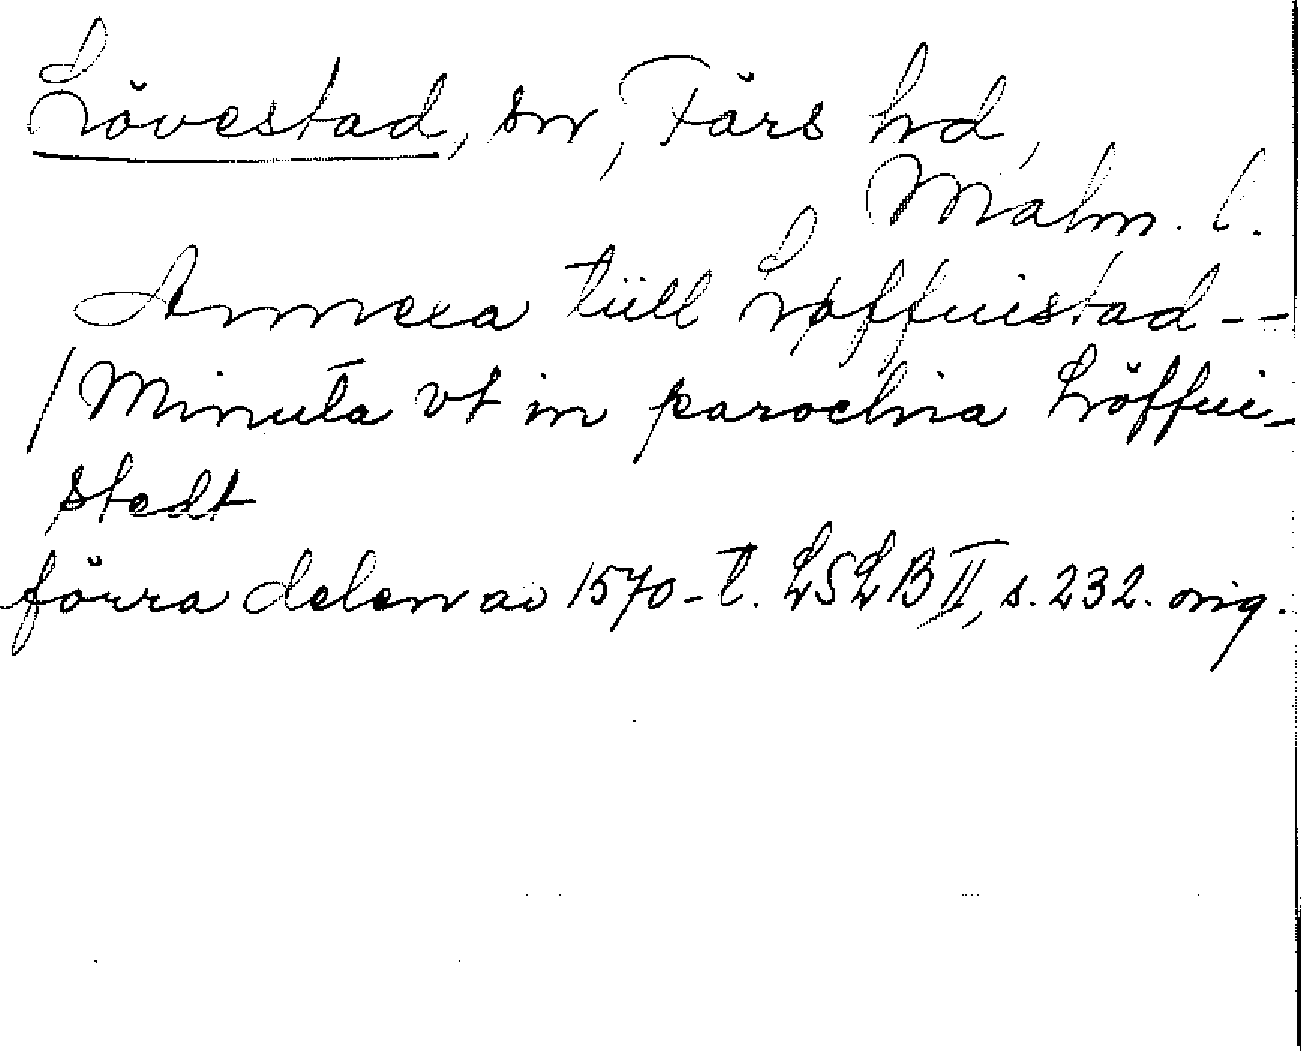 Lövestad, sn, Färs hd,
Malm. l.
Annexa tiill Løffuistad--
/Minuta vt in parochia Löffui-
stedt
förra delen av 1570-t. LSLB II, s. 232. orig.